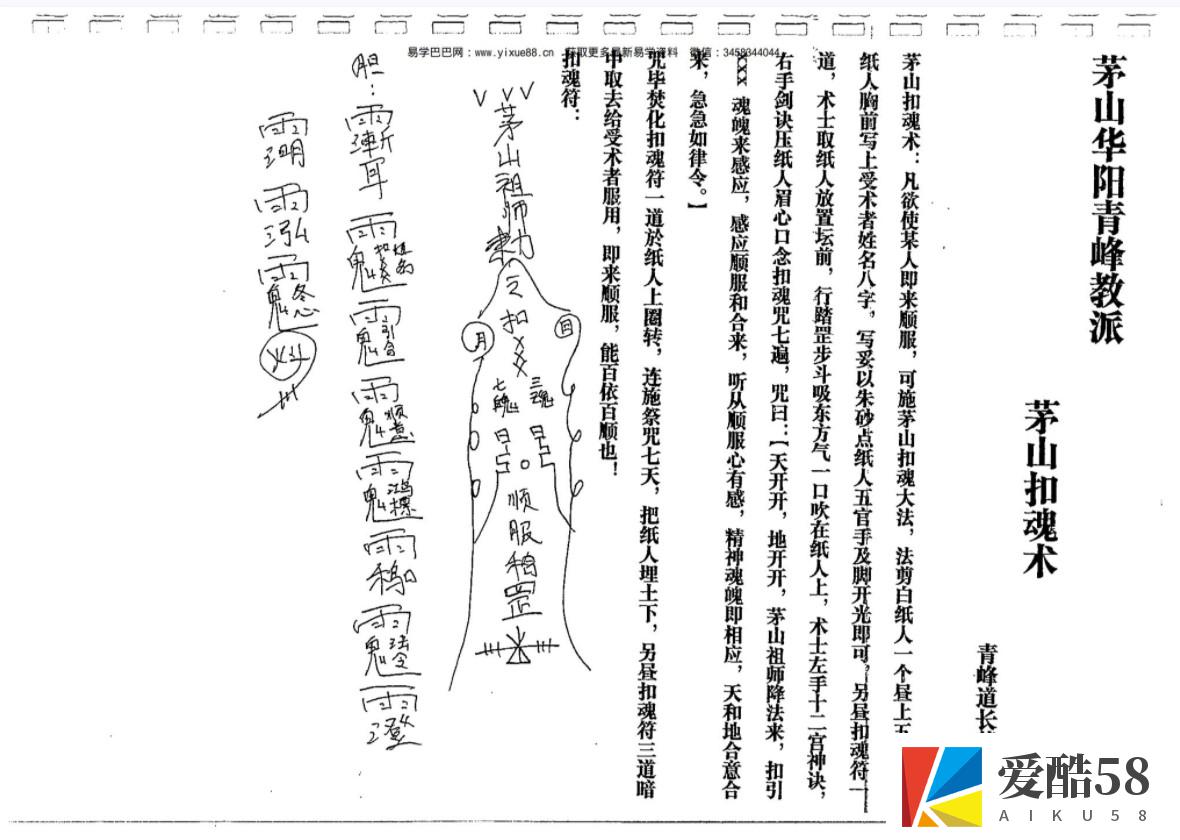 易学巴巴网：www.yixue88.cn 获取更多最新易学资料 微信：3458344044
茅山华阳青峰教派
茅山扣魂术
青峰道长
茅山扣魂术：凡欲使某人即来顺服，可施茅山扣魂大法，法剪白纸人一个昼上五
纸人胸前写上受术者姓名八字，写妥以朱砂点纸人五官手及脚开光即可，另昼扣魂符一
道，术士取纸人放置坛前，行踏罡步斗吸东方气一口吹在纸人上，术士左手十二宫神诀，
右手剑诀压纸人眉心口念扣魂咒七遍，咒曰：【天开开，地开开，茅山祖师降法来，扣引
XXX 魂魄来感应，感应顺服和合来，听从顺服心有感，精神魂魄即相应，天和地合意合
来，急急如律令。】
咒毕焚化扣魂符一道於纸人上圈转，连施祭咒七天，把纸人埋土下，另昼扣魂符三道暗
中取去给受术者服用，即来顺服，能百依百顺也！
扣魂符：
茅山祖师勅
令扣XX
日
月
三魂
七魄
顺服
罡
胆：
爱酷58
AIKU58